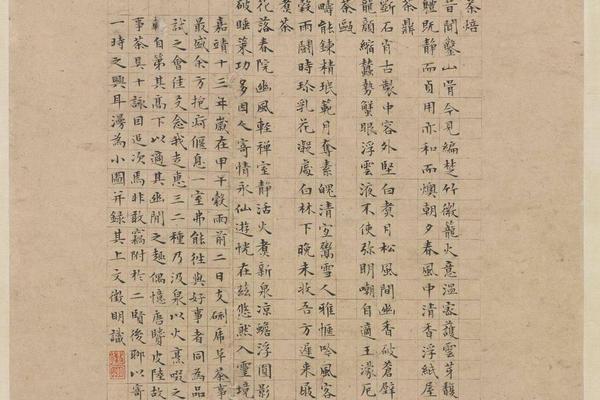 茶焙
昔聞鑿山骨今見編楚竹微籠火意溫密護雲芽馥
體既靜而貞用亦和而燠朝夕春風中清香浮紙屋
茶鼎
斲石肖古製中容外堅白煮月松風間幽香破蒼壁
龍顱縮蠢勢蟹眼浮雲液不使弥明嘲自適王濛厄
茶甌
疇能鍊精珉範月奪素魄清宜鬻雪人雅愜吟風客
穀雨鬪時珍乳花凝處白林下晚未收吾方遲來屐
煮茶
花落春院幽風輕禪室靜活火煮新泉涼蟾浮圓影
破睡策功多因人寄情永仙遊恍在茲悠然入靈境
嘉靖十三年歲在甲午穀雨前二日支硎虎阜茶事
最盛余方抱疴偃息一室弗能往與好事者同為品
試之會佳友念我走惠三二種乃汲泉以火烹啜之
輒自第其高下以適其幽閒之趣偶憶唐賢皮陸故
事茶具十詠因追次焉非敢竊附於二賢後聊以寄
一時之興耳漫為小圖并錄其上文徵明識